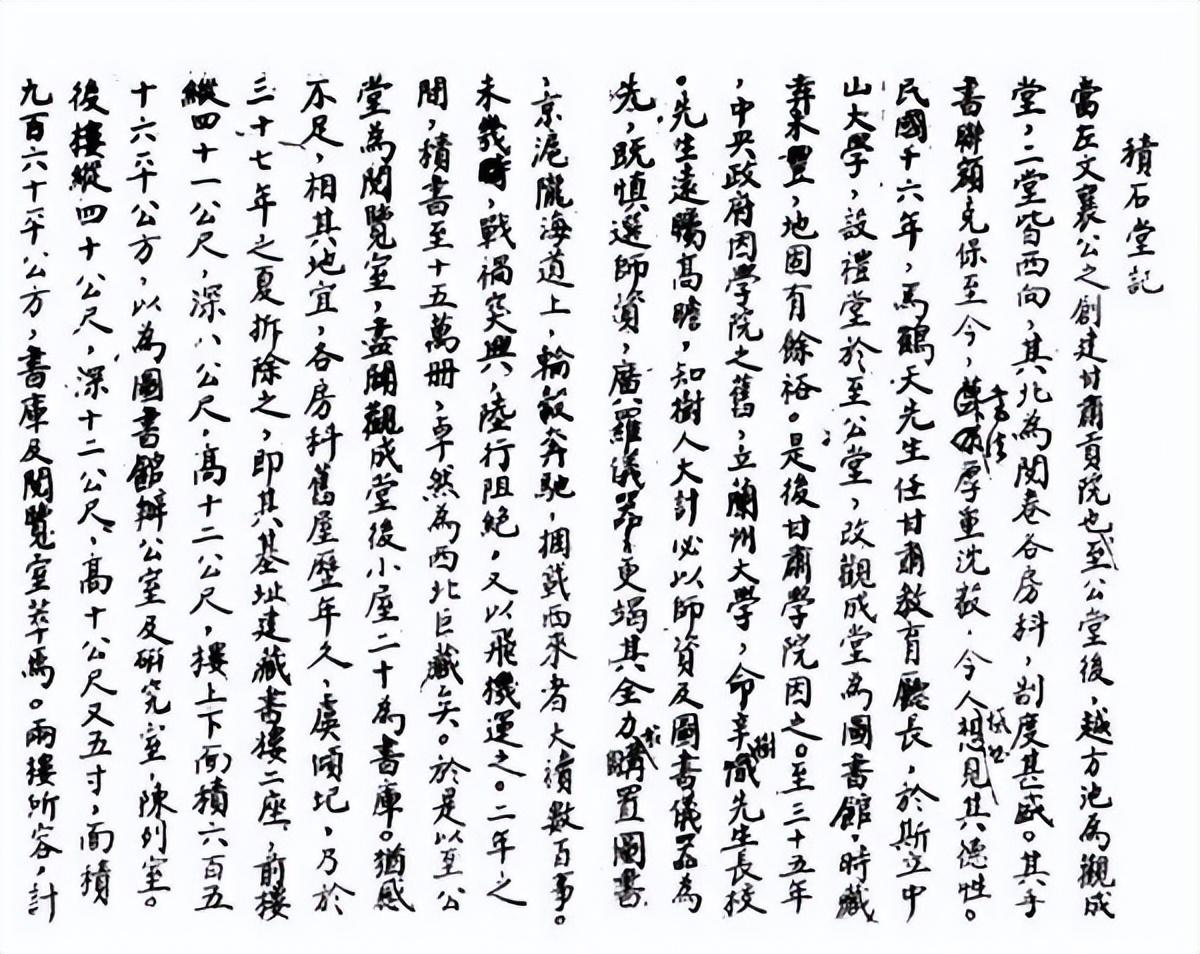 積石堂記
當左文襄公之創建甘肅貢院也，至公堂後，越方池為觀成
堂，二堂皆西向，其北為閱卷各房科，制度甚盛。其手
書聯額克保至今，書法厚重沈毅，今人想見其德性。
民國十六年，馬鶴天先生任甘肅教育廳長，於斯立中
山大學，設禮堂於至公堂，改觀成堂為圖書館，時藏
弆未豐，地固有餘裕。是後甘肅學院因之。至三十五年
，中央政府因學院之舊，立蘭州大學，命辛樹幟先生長校
。先生遠矚高瞻，知樹人大計必以師資及圖書儀器為
先，既慎選師資，廣羅儀器，更竭其全力於購置圖書
，京滬隴海道上，輪轂奔馳，捆載西來者大積數百事。
未幾時，戰禍突興，陸行阻絕，又以飛機運之。二年之
間，積書至十五萬冊，卓然為西北巨藏矣。於是以至公
堂為閱覽室，盡闢觀成堂後小座二十為書庫。猶感
不足，相其地宜，各房科舊屋歷年久，虞傾圮，乃於
三十七年之夏拆除之，即其基址建藏書樓二座，前樓
縱四十一公尺，深八公尺，高十二公尺，樓上下面積六百五
十六平公方，以為圖書館辦公室及研究室，陳列室。
後樓縱四十公尺，深十二公尺，高十公尺又五寸，面積
九百六十平公方，書庫及閱覽室萃焉。兩樓所容，計